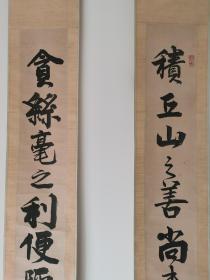 積丘山之善尚
貪絲毫之利便